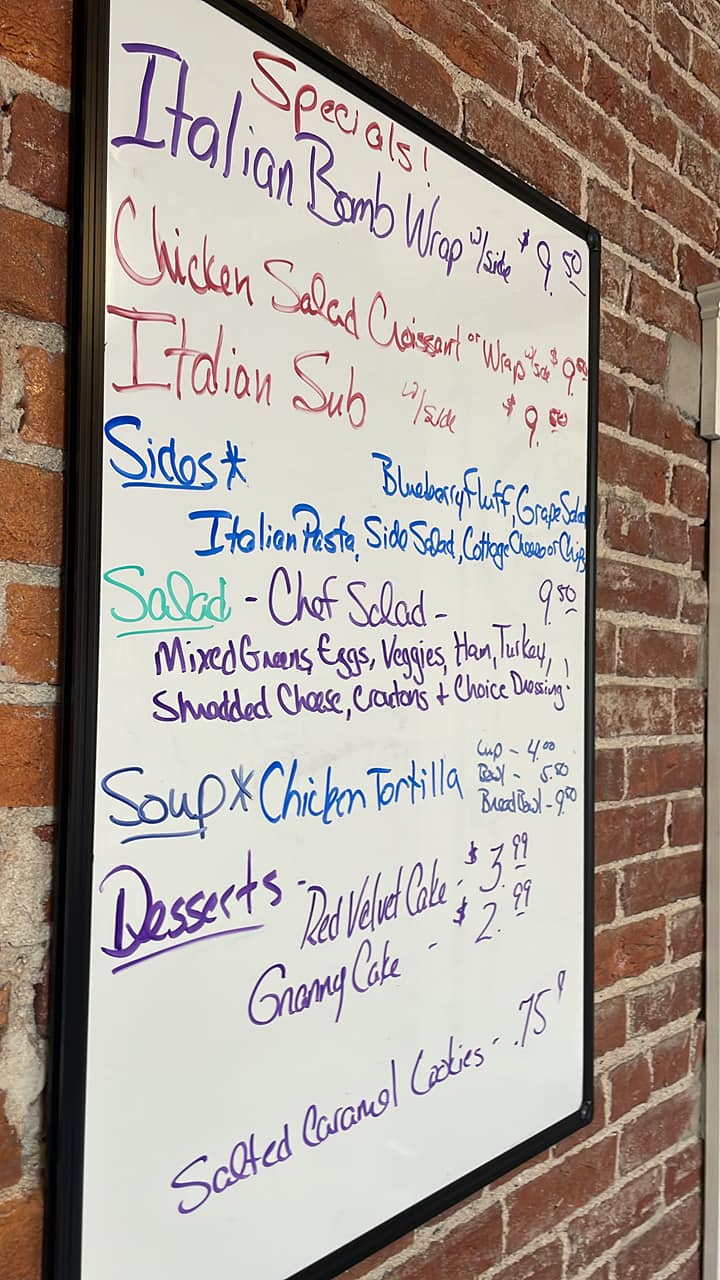 Specials!
Italian Bomb Wrap w/side $9.50
Chicken Salad Croissant or Wrap w/side $9.50
Italian Sub w/side $9.50
Sides* Blueberry Fluff, Grape Salad
Italian Pasta, Side Salad, Cottage Cheese or Chips
Salad - Chef Salad - 9.50
Mixed Greens, Eggs, Veggies, Ham, Turkey,
Shredded Cheese, Croutons + Choice Dressing!
Soup* Chicken Tortilla
Cup - 4.00
Bowl - 5.50
Bread Bowl - 9.50
Desserts - Red Velvet Cake - $3.99
Granny Cake - $2.99
Salted Caramel Cookies - .75¢